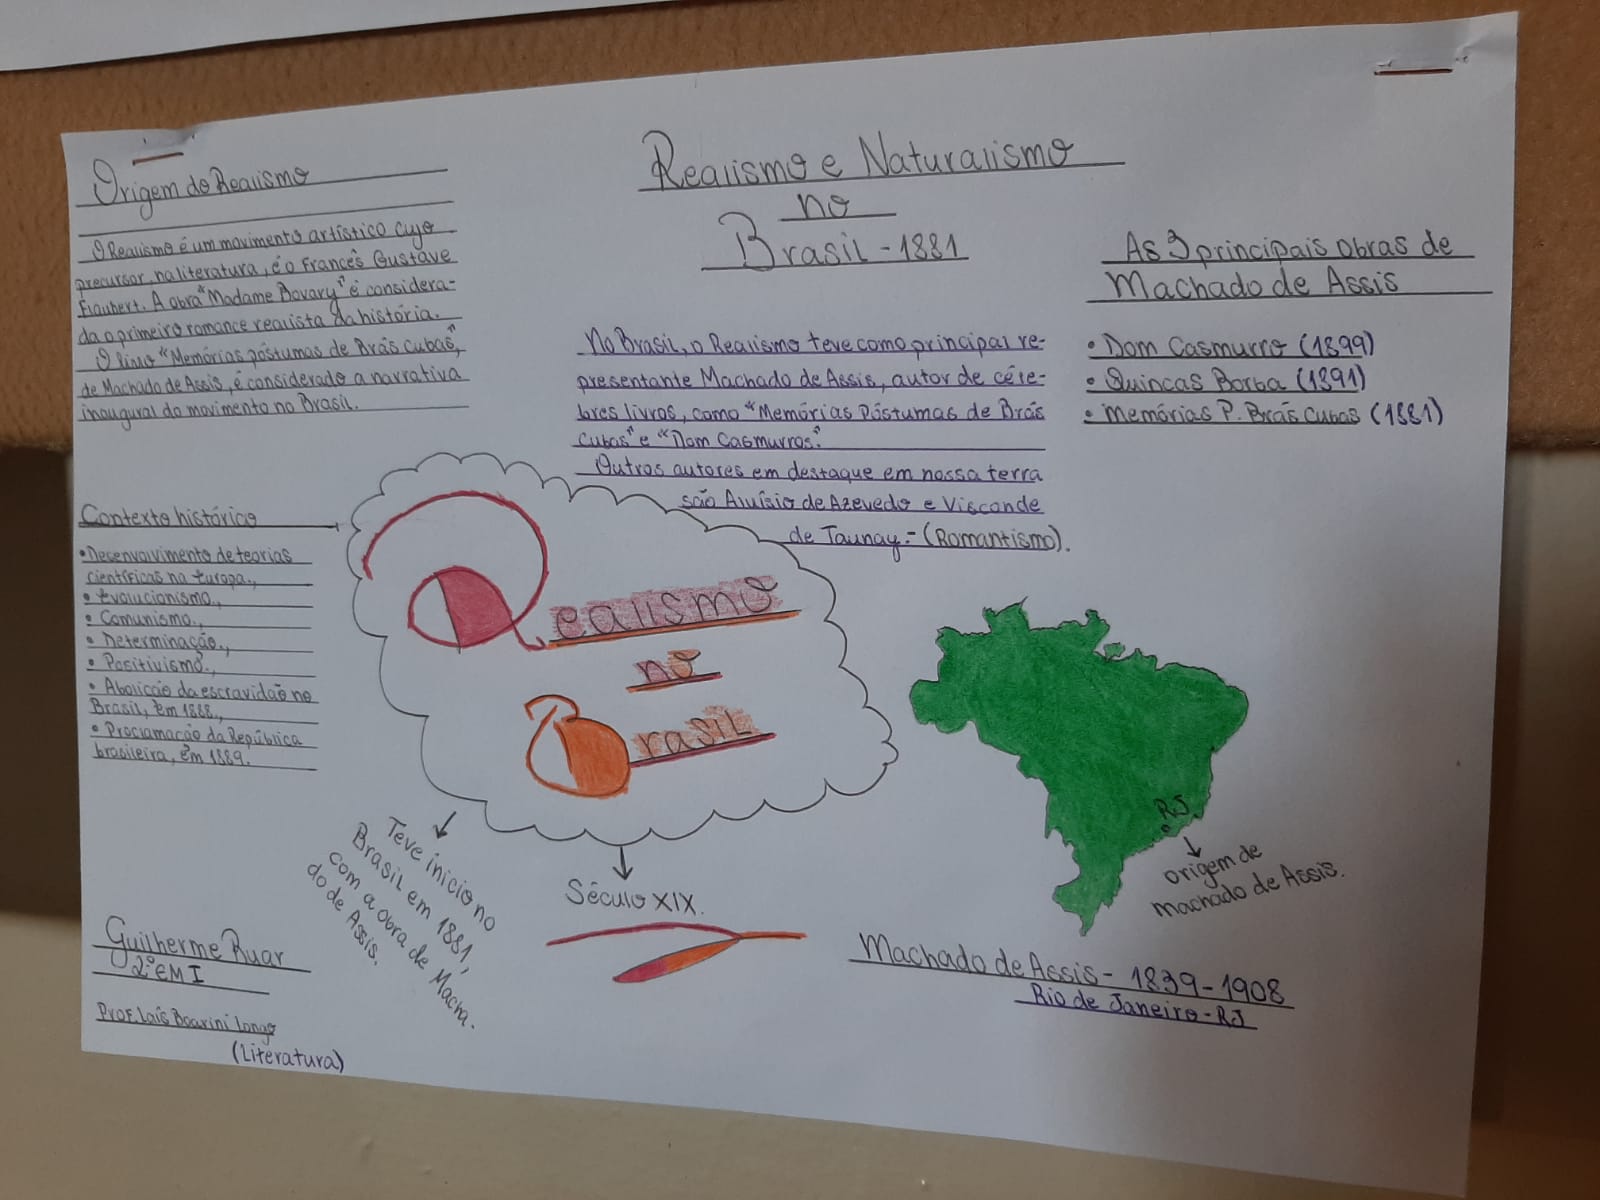 Origem do Realismo
O Realismo é um movimento artístico cujo
precursor, na literatura, é o francês Gustave
Flaubert. A obra "Madame Bovary" é considera-
da o primeiro romance realista da história.
O livro "Memórias póstumas de Brás Cubas",
de Machado de Assis, é considerado a narrativa
inaugural do movimento no Brasil.
Contexto histórico
• Desenvolvimento de teorias
científicas na Europa.,
• Evolucionismo.,
• Comunismo.,
• Determinação.,
• Positivismo.,
• Abolicão da escravidão no
Brasil, em 1888.,
• Proclamacão da República
brasileira, em 1889.
Realismo e Naturalismo
no
Brasil - 1881
No Brasil, o Realismo teve como principal re-
presentante Machado de Assis, autor de céle-
bres livros, como "Memórias Póstumas de Brás
Cubas" e "Dom Casmurros".
Outros autores em destaque em nossa terra
são Aluísio de Azevedo e Visconde
de Taunay.- (Romantismo).
As 3 principais obras de
Machado de Assis
• Dom Casmurro (1899)
• Quincas Borba (1891)
• Memórias P. Brás Cubas (1881)
Realismo
no
Brasil
Teve início no
Brasil em 1881,
com a obra de Macha-
do de Assis.
Século XIX.
RJ
origem de
machado de Assis.
Machado de Assis - 1839-1908
Rio de Janeiro - RJ
Guilherme Ruar
2º EM I
Prof. Laís Boarini Longo
(Literatura)